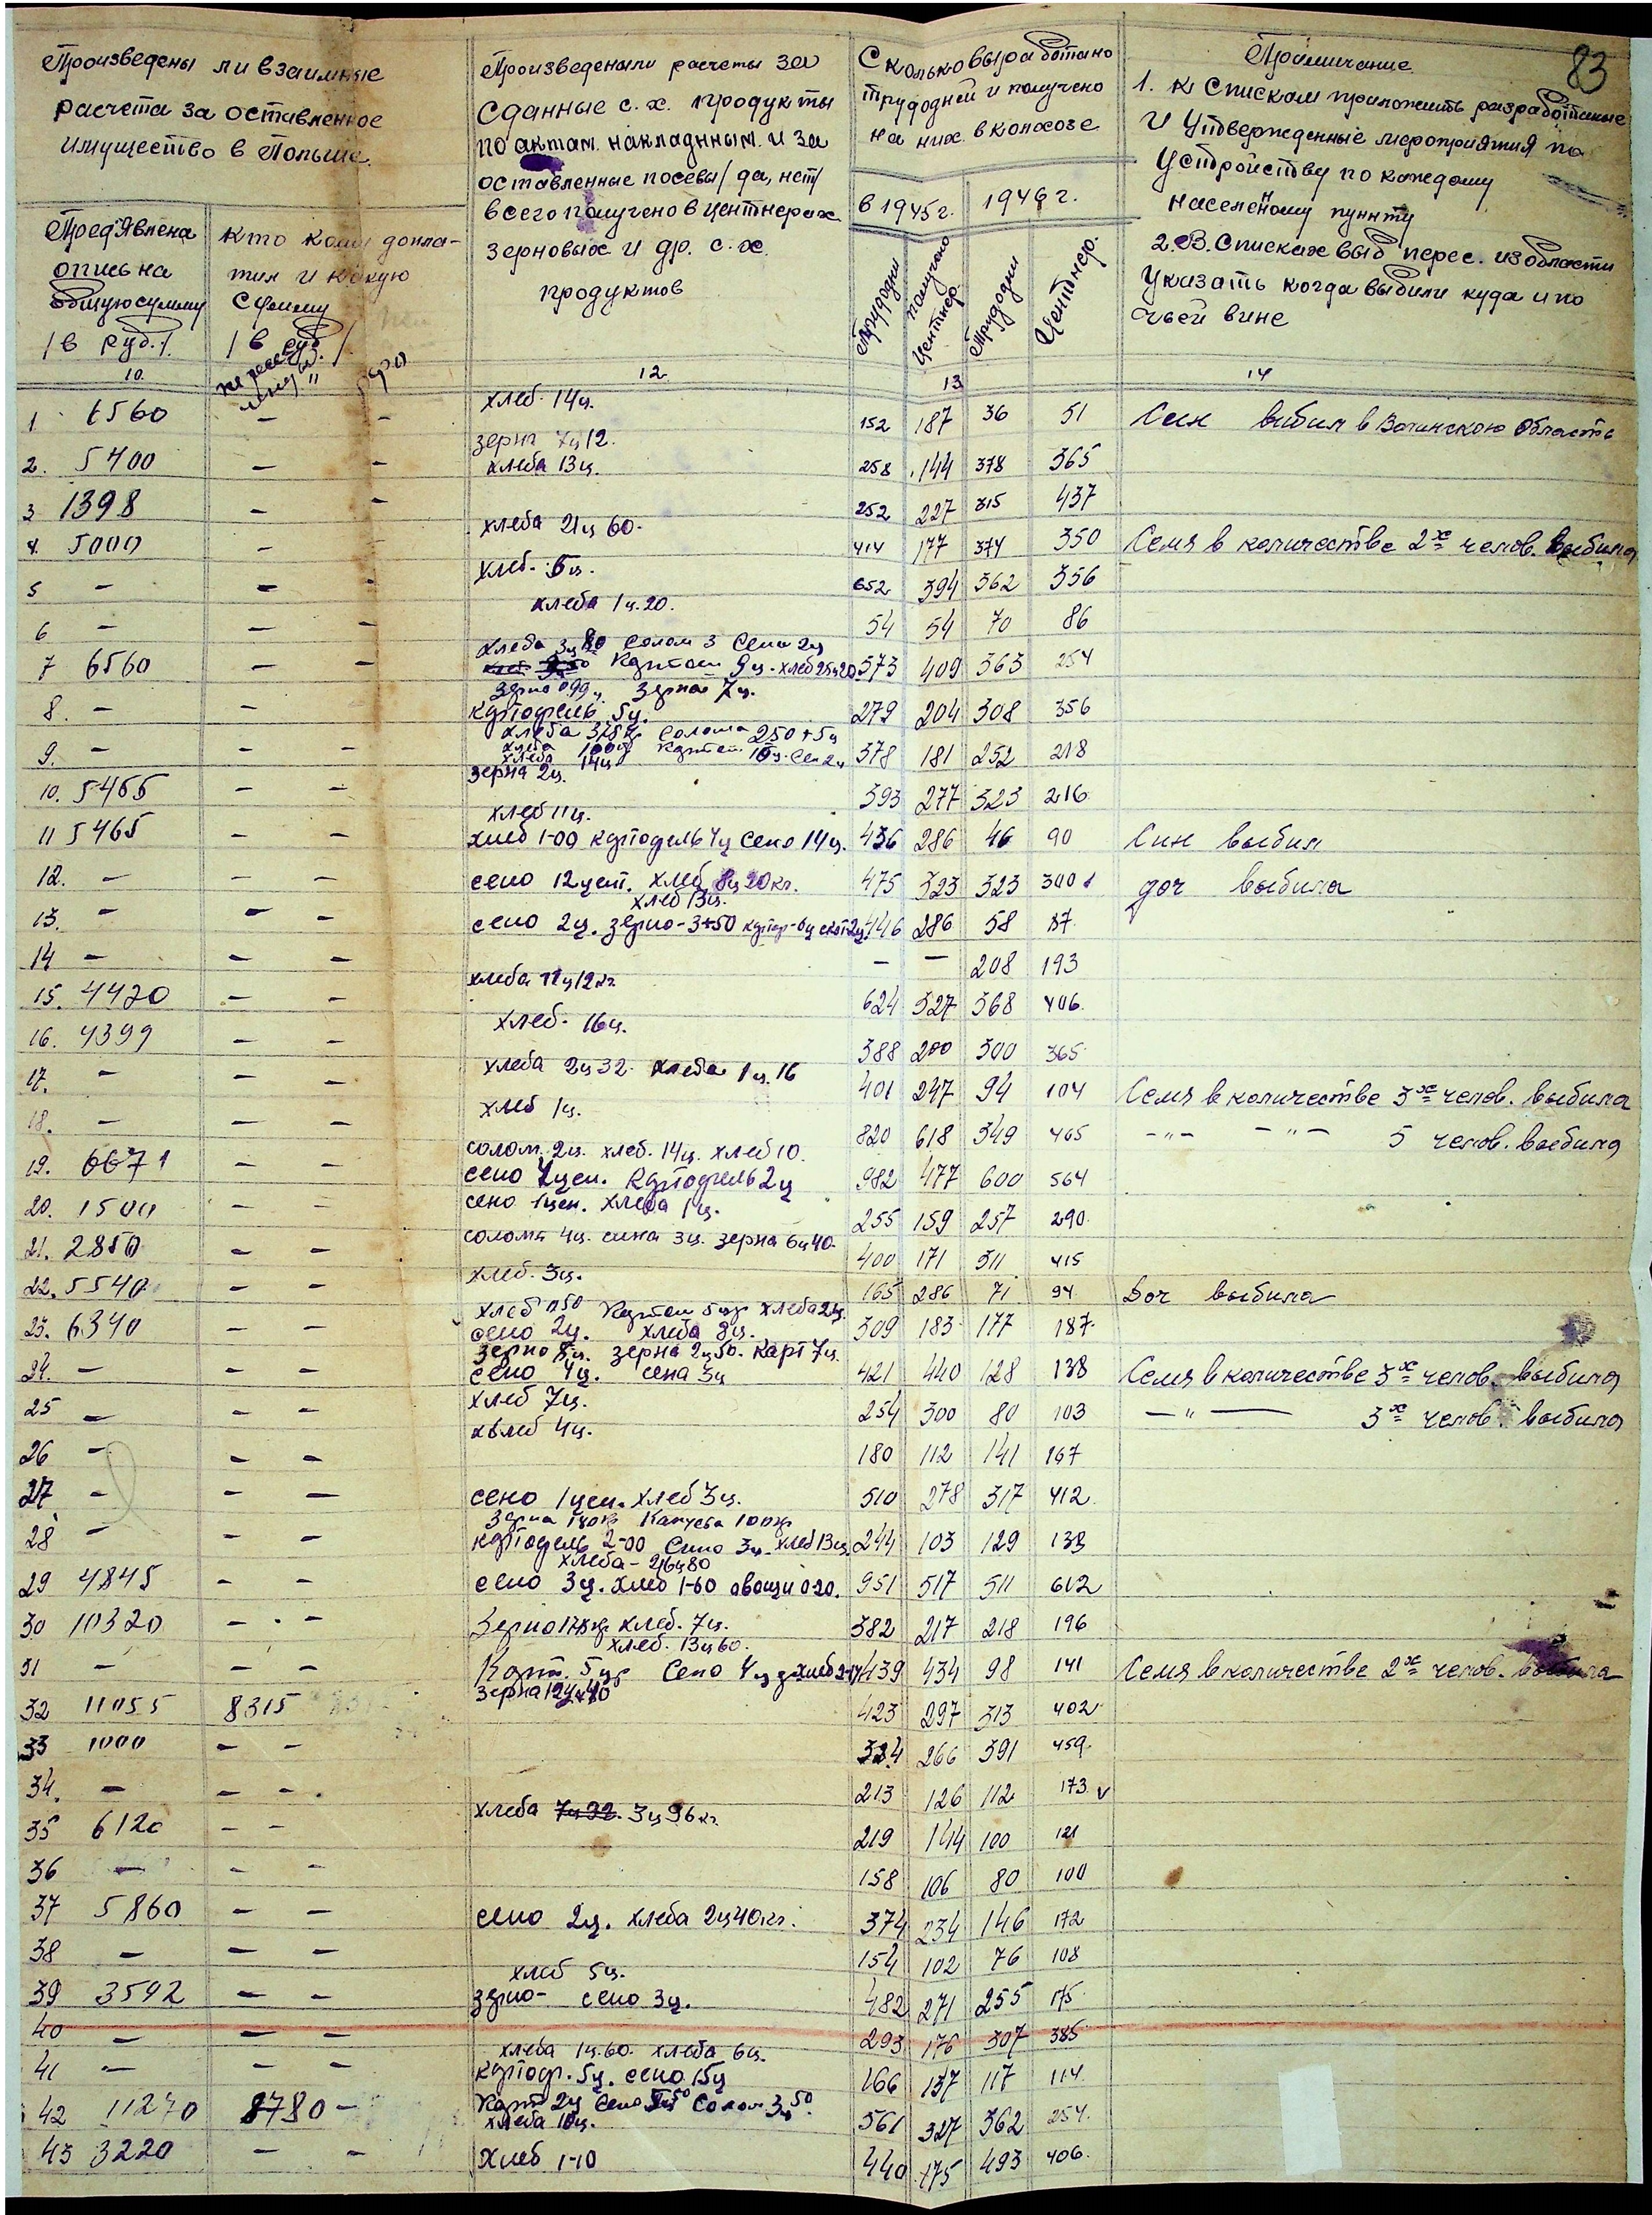 83
Произведены ли взаимные
расчета за оставленное
имущество в Польше.
Пред'явлена
опись на
общую сумму
/в руб./.
10.
кто кому допла-
тил и какую
сумму
/в руб./
11
Произведены ли расчеты за
сданные с.х. продукты
по актам. накладным. и за
оставленные посевы/да, нет/
всего получено в центнерах
зерновых и др. с.х.
продуктов
12.
Сколько выработано
трудодней и получено
на них в колхозе
в 1945 г.
1946 г.
Трудодни
получено центнер.
Трудодни
Центнер.
13
Примичание
1. К Спискам приложить разработанные
и Утвержденные мероприятия по
Устройству по каждому
населеному пункту
2. В. Списках выб перес. из области
Указать когда выбили куда и по
чьей вине
14
1 6560 — — хлеб. 14ц. 152 187 36 51 Син вибил в Область
2. 5400 — — зерна 7ц12. хлеба 13ц. 258 144 378 365
3 1398 — — 252 227 315 437
4. 5000 — хлеба 21ц 60. 414 177 374 350 Семя в количестве 2х челов. выбила
5 — — хлеб. 5ц. 652 394 362 356
6 — — — хлеба 1ц.20. 54 54 70 86
7 6560 — — хлеба 3ц 80 Солом 3 Сена 2ц
Картош 9ц. хлеб 373 409 363 254
зерно 099ц зерна 7ц.
8. — — картофель 5ц. 279 204 308 356
хлеба солома 250+5ц
9. — — — хлеба 14ц 378 181 252 218
зерна 2ц.
10. 5466 — — 393 277 323 216
хлеб 11ц.
11 5465 — — хлеб 1-00 картофель 4ц Сено 14ц. 436 286 46 90 Син выбил
12. — — — сено 12цент. хлеб 8ц 20кг. 475 323 323 300 доч выбила
хлеб 13ц.
13. — — — сено 2ц. зерно-3+50 446 286 58 87
14 — — — — — 208 193
15. 4420 — — хлеба 11ц12кг 624 327 368 406.
16. 4399 — — хлеб. 16ц. 388 200 300 365
17. — — — хлеба 2ц 32. хлеба 1ц.16 401 247 94 104 Семя в количестве 3х челов. выбила
18. — — — хлеб 1ц. 820 618 349 465 -"- -"- 5 челов. выбила
19. 6671 — — солом. 2ц. хлеб. 14ц. хлеб 10.
сено 4цен. картофель 2ц 982 477 600 564
20. 1500 — — сено 1цен. хлеба 1ц. 255 159 257 290
21. 2850 — — солома 4ц. сина 3ц. зерна 6ц40. 400 171 311 415
22. 5540 — — хлеб. 3ц. 165 286 71 94 Доч выбила
23. 6340 — — хлеб Картош хлеба 2ц.
сено 2ц. хлеба 8ц. 309 183 177 187
24. — — — зерно 8ц. зерна 2ц50. карт 7ц.
сено 4ц. сена 3ц 421 440 128 138 Семя в количестве 3х челов. выбила
25 — — — хлеб 7ц. 254 300 80 103 —"— 3х челов. выбила
хвлеб 4ц.
26 — — — 180 112 141 167
27 — — — сено 1цен. хлеб 3ц. 510 278 317 412
Зерна Капуста
28 — — — картофель 2-00 Сино 3ц. хлеб 13ц. 244 103 129 133
хлеба-
29 4845 — — сено 3ц. хлеб 1-60 овощи 0-20. 951 517 511 612
30 10320 — — Зерно хлеб. 7ц. 382 217 218 196
хлеб. 13ц60.
31 — — — Карт. 5ц Сено 4ц 439 434 98 141 Семя в количестве 2х челов. выбила
зерна
32 11055 8315 423 297 313 402
33 1000 — — 324 266 391 459
34. — — — 213 126 112 173
35 6120 — — хлеба 7ц 22. 3ц 96кг. 219 144 100 121
36 — — — 158 106 80 100
37 5860 — — сено 2ц. хлеба 2ц40кг. 374 234 146 172
38 — — — 154 102 76 108
хлеб 5ц.
39 3592 — — зерно- сено 3ц. 482 271 255 175
40 — — — 293 176 307 385
хлеба 1ц.60. хлеба 6ц.
41 — — — картоф. 5ц. сено 15ц 166 137 117 114
42 11270 8780 — Карт 2ц Сено Солом 3ц50
хлеба 10ц. 561 327 362 254
43 3220 — — Хлеб 1-10 440 175 493 406